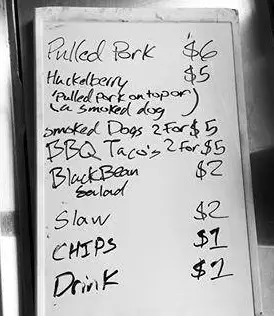 Pulled Pork $6
Huckelberry $5
(Pulled Pork on top of)
(a smoked dog)
Smoked Dogs 2 For $5
BBQ Taco's 2 For $5
Black Bean $2
Salad
Slaw $2
CHIPS $1
Drink $1